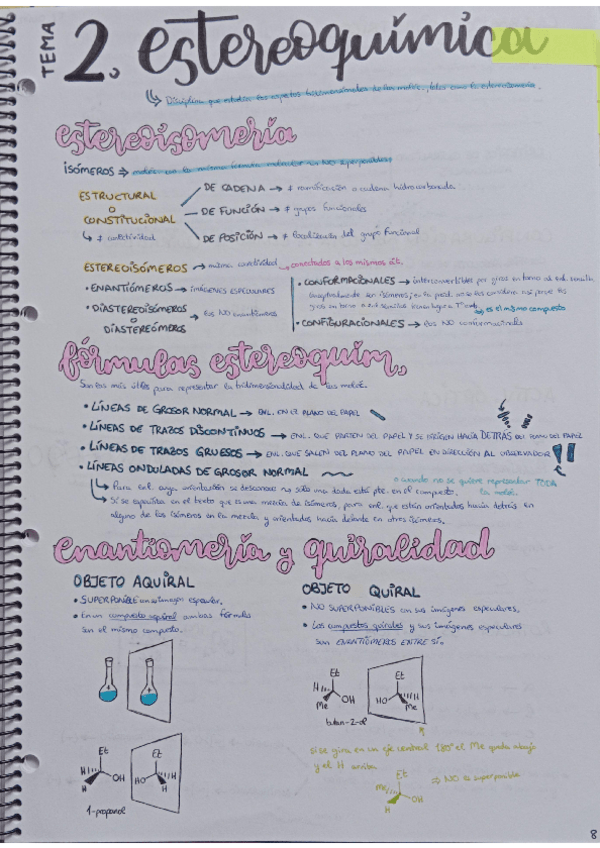 TEMA
2. estereoquímica
Disciplina que estudia los aspectos tridimensionales de las moléc., tales como la estereoisomería.
estereoisomería
ISÓMEROS → moléc. con la misma fórmula molecular son NO superponibles
ESTRUCTURAL
O
CONSTITUCIONAL
↳ ≠ conectividad
DE CADENA → ≠ ramificación o cadena hidrocarbonada
DE FUNCIÓN → ≠ grupos funcionales
DE POSICIÓN → ≠ localización del grupo funcional
ESTEREOISÓMEROS → misma conectividad → conectados a los mismos át.
• ENANTIÓMEROS → imágenes especulares
• DIASTEREOISÓMEROS
O
DIASTEREÓMEROS
→ los NO enantiómeros
• CONFORMACIONALES → interconvertibles por giros en torno al enl. sencillo
es el mismo compuesto
• CONFIGURACIONALES → los NO conformacionales
fórmulas estereoquím.
Son las más útiles para representar la tridimensionalidad de las moléc.
• LÍNEAS DE GROSOR NORMAL → ENL. EN EL PLANO DEL PAPEL
• LÍNEAS DE TRAZOS DISCONTINUOS → ENL. QUE PARTEN DEL PAPEL Y SE DIRIGEN HACIA DETRÁS DEL PLANO DEL PAPEL
• LÍNEAS DE TRAZOS GRUESOS → ENL. QUE SALEN DEL PLANO DEL PAPEL EN DIRECCIÓN AL OBSERVADOR
• LÍNEAS ONDULADAS DE GROSOR NORMAL
o cuando no se quiere representar TODA
la moléc.
↳ Para enl. cuya orientación se desconoce no sólo una dada está pte. en el compuesto.
↳ Si se especifica en el texto que es una mezcla de isómeros, para enl. que están orientados hacia detrás en
alguno de los isómeros en la mezcla y orientados hacia delante en otros isómeros.
enantiomería y quiralidad
OBJETO AQUIRAL
• SUPERPONIBLE con su imagen especular.
• En un compuesto aquiral ambas fórmulas
son el mismo compuesto.
OBJETO QUIRAL
• NO SUPERPONIBLES con sus imágenes especulares.
• Los compuestos quirales y sus imágenes especulares
son ENANTIÓMEROS ENTRE SÍ.
Et
H
Me
OH
Et
HO
H
Me
butan-2-ol
Et
H
H
OH
Et
HO
H
H
1-propanol
si se gira en un eje central 180° el Me queda abajo
y el H arriba
Et
Me
H
OH
⇒ NO es superponible
8